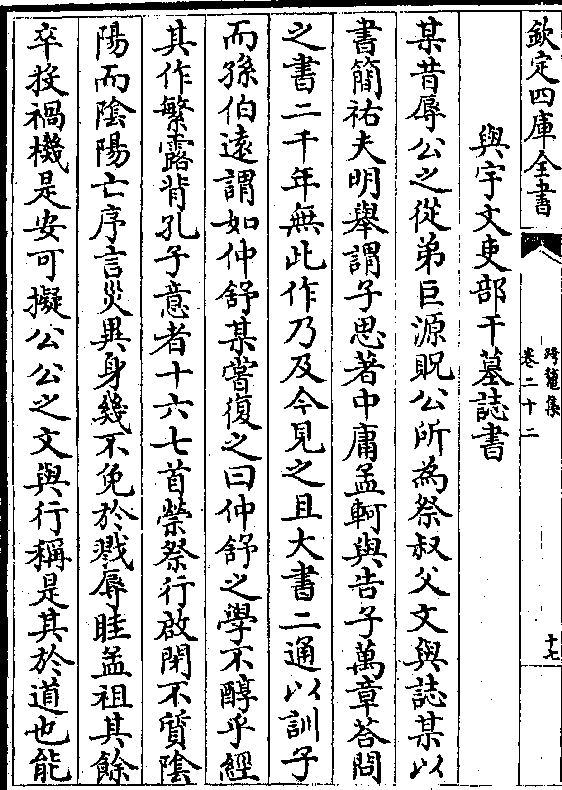 欽定四庫全書
跨鼇集
卷二十二
十七
與宇文吏部干墓誌書
某昔辱公之從弟巨源貺公所為祭叔父文與誌某以
書簡祐夫明舉謂子思著中庸孟軻與告子萬章荅問
之書二千年無此作乃及今見之且大書二通以訓子
而孫伯遠謂如仲舒某嘗復之曰仲舒之學不醇乎經
其作繁露背孔子意者十六七首禜祭行啟閉不質陰
陽而陰陽亡序言災異身幾不免於戮辱眭孟祖其餘
卒投禍機是安可擬公公之文與行稱是其於道也能